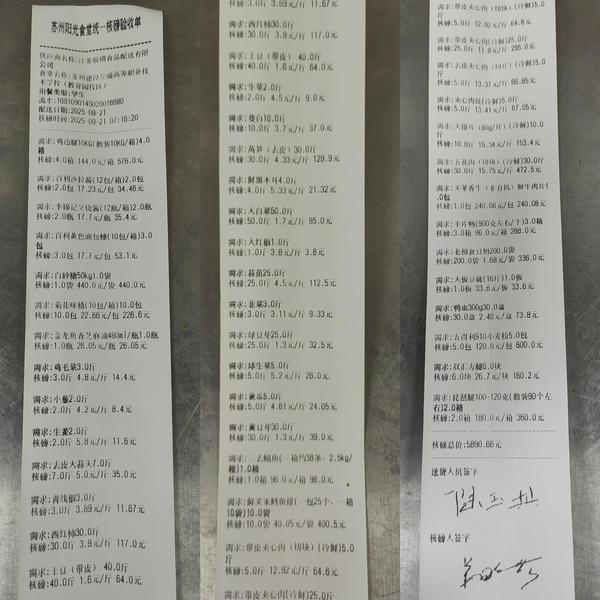 苏州阳光食堂统一核磅验收单
供应商名称:江苏骏瑞食品配送有限
公司
食堂名称:苏州建设交通高等职业技
术学校（教育园校区）
用餐类型:学生
流水:1691090149020016680
配送日期:2025-09-21
核磅时间:2025-09-21 07:16:20
需求:鸡边腿10KG(散装10KG/箱)4.0
箱
核磅:4.0箱 144.0元/箱 576.0元
需求:百利沙拉酱(12包/箱)2.0包
核磅:2.0包 17.23元/包 34.46元
需求:李锦记叉烧酱(12瓶/箱)2.0瓶
核磅:2.0瓶 17.7元/瓶 35.4元
需求:百利黄色面包糠(10包/箱)3.0
包
核磅:3.0包 17.7元/包 53.1元
需求:白砂糖50kg1.0袋
核磅:1.0袋 440.0元/袋 440.0元
需求:菊花味精(10包/箱)10.0包
核磅:10.0包 22.66元/包 226.6元
需求:金龙鱼香芝麻油480ml/瓶1.0瓶
核磅:1.0瓶 26.05元/瓶 26.05元
需求:鸡毛菜3.0斤
核磅:3.0斤 4.8元/斤 14.4元
需求:小葱2.0斤
核磅:2.0斤 4.2元/斤 8.4元
需求:生姜2.0斤
核磅:2.0斤 5.8元/斤 11.6元
需求:去皮大蒜头7.0斤
核磅:7.0斤 5.0元/斤 35.0元
需求:青线椒3.0斤
核磅:3.0斤 3.89元/斤 11.67元
需求:西红柿30.0斤
核磅:30.0斤 3.9元/斤 117.0元
需求:土豆（带皮） 40.0斤
核磅:40.0斤 1.6元/斤 64.0元
核磅:3.0斤 3.89元/斤 11.67元
需求:西红柿30.0斤
核磅:30.0斤 3.9元/斤 117.0元
需求:土豆（带皮） 40.0斤
核磅:40.0斤 1.6元/斤 64.0元
需求:生菜2.0斤
核磅:2.0斤 4.5元/斤 9.0元
需求:茭白10.0斤
核磅:10.0斤 3.7元/斤 37.0元
需求:莴笋（去皮）30.0斤
核磅:30.0斤 4.33元/斤 129.9元
需求:鲜黑木耳4.0斤
核磅:4.0斤 5.33元/斤 21.32元
需求:大白菜50.0斤
核磅:50.0斤 1.7元/斤 85.0元
需求:大红椒1.0斤
核磅:1.0斤 3.8元/斤 3.8元
需求:蒜苗25.0斤
核磅:25.0斤 4.5元/斤 112.5元
需求:韭菜3.0斤
核磅:3.0斤 3.11元/斤 9.33元
需求:绿豆芽25.0斤
核磅:25.0斤 1.3元/斤 32.5元
需求:绿生菜5.0斤
核磅:5.0斤 5.2元/斤 26.0元
需求:黄瓜5.0斤
核磅:5.0斤 4.81元/斤 24.05元
需求:黄豆芽30.0斤
核磅:30.0斤 1.3元/斤 39.0元
需求:三去鲳鱼(一箱约38条，2.5kg/
箱)1.0箱
核磅:1.0箱 96.0元/箱 96.0元
需求:鲜美来鳕鱼排(一包25个，一箱
10袋)10.0袋
核磅:10.0袋 40.05元/袋 400.5元
需求:带皮夹心肉（切块）(冷鲜)5.0
斤
核磅:5.0斤 12.92元/斤 64.6元
需求:带皮夹心肉(冷鲜)25.0斤
需求:带皮夹心肉（切块）(冷鲜)5.0
斤
核磅:5.0斤 12.92元/斤 64.6元
需求:带皮夹心肉(冷鲜)25.0斤
核磅:25.0斤 11.8元/斤 295.0元
需求:去皮夹心肉（切片）(冷鲜)5.0
斤
核磅:5.0斤 13.37元/斤 66.85元
需求:夹心肉丝(冷鲜)5.0斤
核磅:5.0斤 13.41元/斤 67.05元
需求:大排片（80g/片）(冷鲜)10.0
斤
核磅:10.0斤 15.34元/斤 153.4元
需求:五花肉（切块）(冷鲜)30.0斤
核磅:30.0斤 15.75元/斤 472.5元
1.0包
核磅:1.0包 240.08元/包 240.08元
需求:半片鸭(900克左右/个)3.0箱
核磅:3.0箱 96.0元/箱 288.0元
需求:老相食豆奶200.0袋
核磅:200.0袋 1.68元/袋 336.0元
需求:大板豆腐(16斤)1.0板
核磅:1.0板 33.6元/板 33.6元
需求:鸭血300g30.0盒
核磅:30.0盒 2.46元/盒 73.8元
需求:五得利910小麦粉5.0包
核磅:5.0包 120.0元/包 600.0元
需求:双汇方腿6.0块
核磅:6.0块 26.7元/块 160.2元
需求:琵琶腿100-120克(散装90个左
右)2.0箱
核磅:2.0箱 180.0元/箱 360.0元
核磅总价:5890.66元
送货人员签字
核磅人签字